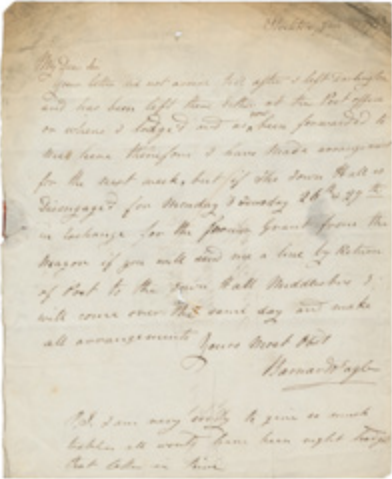 My Dear Sir
Your letter did not arrive till after I left
and has been left there either at the Post office
or where I lodged and as been forwarded to
here therefore I have made arrangement
for the next week, but if the Town Hall is
Disengaged for Monday & Tuesday 26th & 27th
in Exchange for the Grant from the
if you will send me a line by Return
of Post to the Town Hall I
will come over the same day and make
all arrangements
Yours Most Obt
P.S. I am very sorry to give so much
trouble all would have been right had I
that letter in time